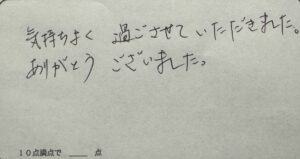 気持ちよく 過ごさせて いただきました。
ありがとう ございました。
10点満点で ____ 点